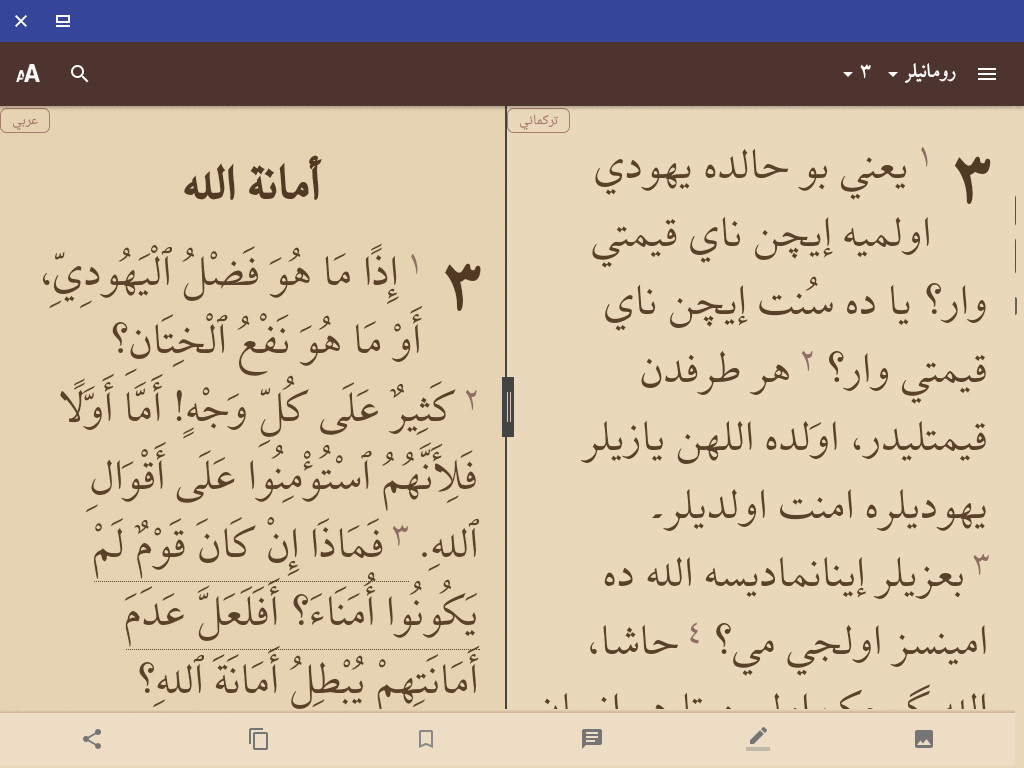 رومانيلر ٣
تركماني
٣ ١ يعني بو حالده يهودي
اولميه إيچن ناي قيمتي
وار؟ يا ده سُنت إيچن ناي
قيمتي وار؟ ٢ هر طرفدن
قيمتليدر، اوَلده اللهن يازيلر
يهوديلره امنت اولديلر۔
٣ بعزيلر إينانماديسه الله ده
امينسز اولجي مي؟ ٤ حاشا،
عربي
أمانة الله
٣ ١ إِذًا مَا هُوَ فَضْلُ ٱلْيَهُودِيِّ،
أَوْ مَا هُوَ نَفْعُ ٱلْخِتَانِ؟
٢ كَثِيرٌ عَلَى كُلِّ وَجْهٍ! أَمَّا أَوَّلًا
فَلِأَنَّهُمُ ٱسْتُؤْمِنُوا عَلَى أَقْوَالِ
ٱللهِ. ٣ فَمَاذَا إِنْ كَانَ قَوْمٌ لَمْ
يَكُونُوا أُمَنَاءَ؟ أَفَلَعَلَّ عَدَمَ
أَمَانَتِهِمْ يُبْطِلُ أَمَانَةَ ٱللهِ؟